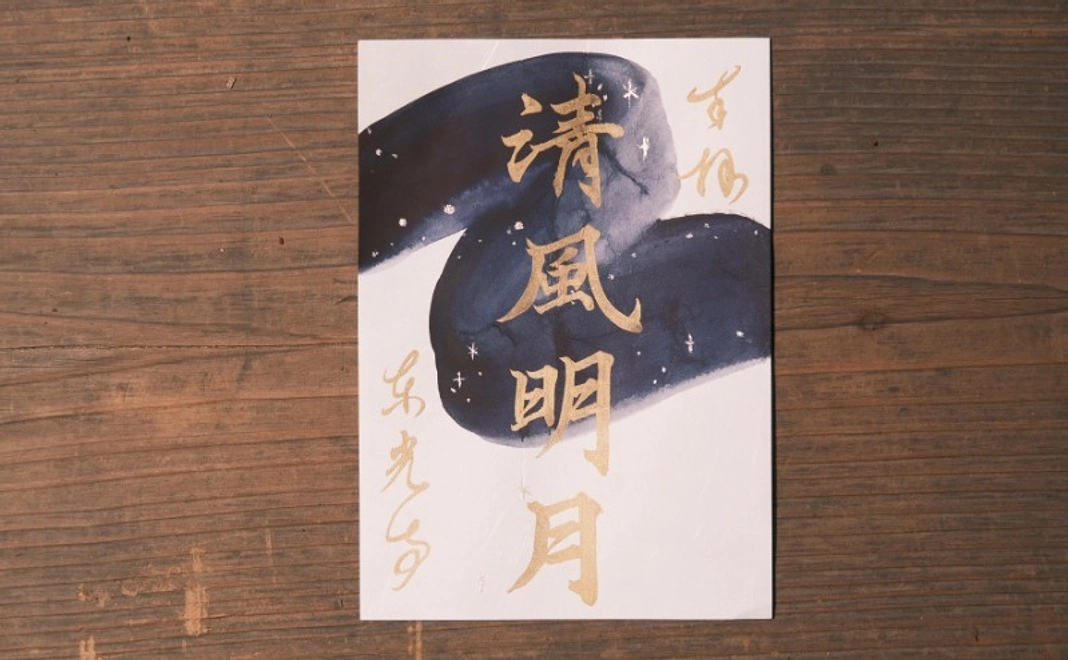 奉拝
清風明月
东光寺